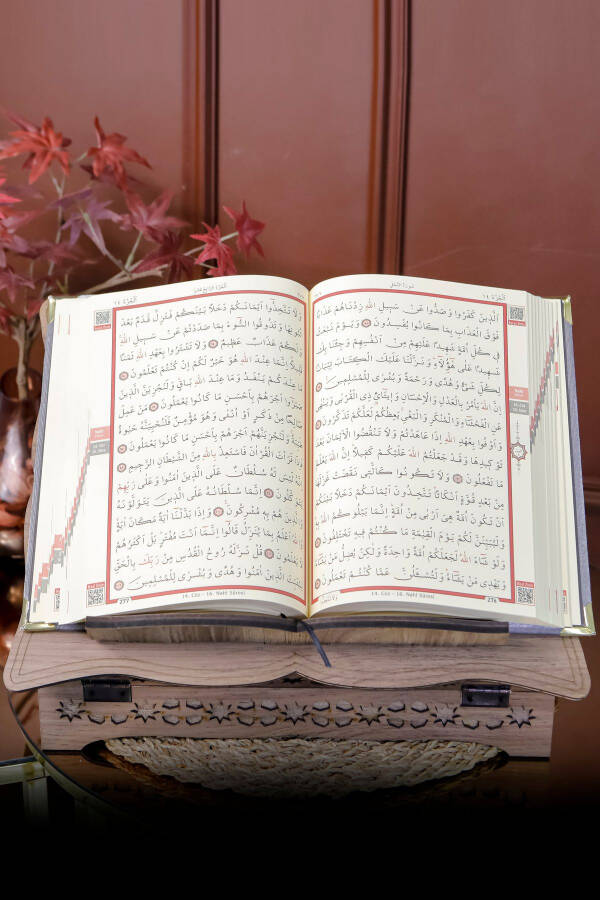 اَلْجُزْءُ ١٤
سُورَةُ النَّحْلِ
اَلَّذِينَ كَفَرُوا وَصَدُّوا عَنْ سَبِيلِ اللّٰهِ زِدْنَاهُمْ عَذَابًا
فَوْقَ الْعَذَابِ بِمَا كَانُوا يُفْسِدُونَ ۝ وَيَوْمَ نَبْعَثُ
فِي كُلِّ اُمَّةٍ شَهِيدًا عَلَيْهِمْ مِنْ اَنْفُسِهِمْ وَجِئْنَا بِكَ
شَهِيدًا عَلٰى هٰٓؤُلَٓاءِ وَنَزَّلْنَا عَلَيْكَ الْكِتَابَ تِبْيَانًا
لِكُلِّ شَيْءٍ وَهُدًى وَرَحْمَةً وَبُشْرٰى لِلْمُسْلِمِينَ ۝
اِنَّ اللّٰهَ يَأْمُرُ بِالْعَدْلِ وَالْاِحْسَانِ وَاِيتَٓائِ ذِي الْقُرْبٰى وَيَنْهٰى
عَنِ الْفَحْشَٓاءِ وَالْمُنْكَرِ وَالْبَغْيِ يَعِظُكُمْ لَعَلَّكُمْ تَذَكَّرُونَ ۝
وَاَوْفُوا بِعَهْدِ اللّٰهِ اِذَا عَاهَدْتُمْ وَلَا تَنْقُضُوا الْاَيْمَانَ بَعْدَ
تَوْكِيدِهَا وَقَدْ جَعَلْتُمُ اللّٰهَ عَلَيْكُمْ كَفِيلًا اِنَّ اللّٰهَ يَعْلَمُ
مَا تَفْعَلُونَ ۝ وَلَا تَكُونُوا كَالَّتِي نَقَضَتْ غَزْلَهَا
مِنْ بَعْدِ قُوَّةٍ اَنْكَاثًا تَتَّخِذُونَ اَيْمَانَكُمْ دَخَلًا بَيْنَكُمْ
اَنْ تَكُونَ اُمَّةٌ هِيَ اَرْبٰى مِنْ اُمَّةٍ اِنَّمَا يَبْلُوكُمُ اللّٰهُ بِهِ
وَلَيُبَيِّنَنَّ لَكُمْ يَوْمَ الْقِيٰمَةِ مَا كُنْتُمْ فِيهِ تَخْتَلِفُونَ ۝
وَلَوْ شَٓاءَ اللّٰهُ لَجَعَلَكُمْ اُمَّةً وَاحِدَةً وَلٰكِنْ يُضِلُّ مَنْ يَشَٓاءُ
وَيَهْدِي مَنْ يَشَٓاءُ وَلَتُسْـَٔلُنَّ عَمَّا كُنْتُمْ تَعْمَلُونَ ۝
14. Cüz - 16. Nahl Sûresi
276
اَلْجُزْءُ ١٤
وَلَا تَتَّخِذُٓوا اَيْمَانَكُمْ دَخَلًا بَيْنَكُمْ فَتَزِلَّ قَدَمٌ بَعْدَ
ثُبُوتِهَا وَتَذُوقُوا السُّٓوءَ بِمَا صَدَدْتُمْ عَنْ سَبِيلِ اللّٰهِ
وَلَكُمْ عَذَابٌ عَظِيمٌ ۝ وَلَا تَشْتَرُوا بِعَهْدِ اللّٰهِ ثَمَنًا
قَلِيلًا اِنَّمَا عِنْدَ اللّٰهِ هُوَ خَيْرٌ لَكُمْ اِنْ كُنْتُمْ تَعْلَمُونَ ۝
مَا عِنْدَكُمْ يَنْفَدُ وَمَا عِنْدَ اللّٰهِ بَاقٍ وَلَنَجْزِيَنَّ الَّذِينَ
صَبَرُٓوا اَجْرَهُمْ بِاَحْسَنِ مَا كَانُوا يَعْمَلُونَ ۝ مَنْ عَمِلَ
صَالِحًا مِنْ ذَكَرٍ اَوْ اُنْثٰى وَهُوَ مُؤْمِنٌ فَلَنُحْيِيَنَّهُ حَيٰوةً
طَيِّبَةً وَلَنَجْزِيَنَّهُمْ اَجْرَهُمْ بِاَحْسَنِ مَا كَانُوا يَعْمَلُونَ ۝
فَاِذَا قَرَأْتَ الْقُرْاٰنَ فَاسْتَعِذْ بِاللّٰهِ مِنَ الشَّيْطَانِ الرَّجِيمِ ۝
اِنَّهُ لَيْسَ لَهُ سُلْطَانٌ عَلَى الَّذِينَ اٰمَنُوا وَعَلٰى رَبِّهِمْ
يَتَوَكَّلُونَ ۝ اِنَّمَا سُلْطَانُهُ عَلَى الَّذِينَ يَتَوَلَّوْنَهُ
وَالَّذِينَ هُمْ بِهِ مُشْرِكُونَ ۝ وَاِذَا بَدَّلْنَٓا اٰيَةً مَكَانَ اٰيَةٍ
وَاللّٰهُ اَعْلَمُ بِمَا يُنَزِّلُ قَالُٓوا اِنَّمَٓا اَنْتَ مُفْتَرٍ بَلْ اَكْثَرُهُمْ
لَا يَعْلَمُونَ ۝ قُلْ نَزَّلَهُ رُوحُ الْقُدُسِ مِنْ رَبِّكَ بِالْحَقِّ
لِيُثَبِّتَ الَّذِينَ اٰمَنُوا وَهُدًى وَبُشْرٰى لِلْمُسْلِمِينَ ۝
14. Cüz - 16. Nahl Sûresi
277